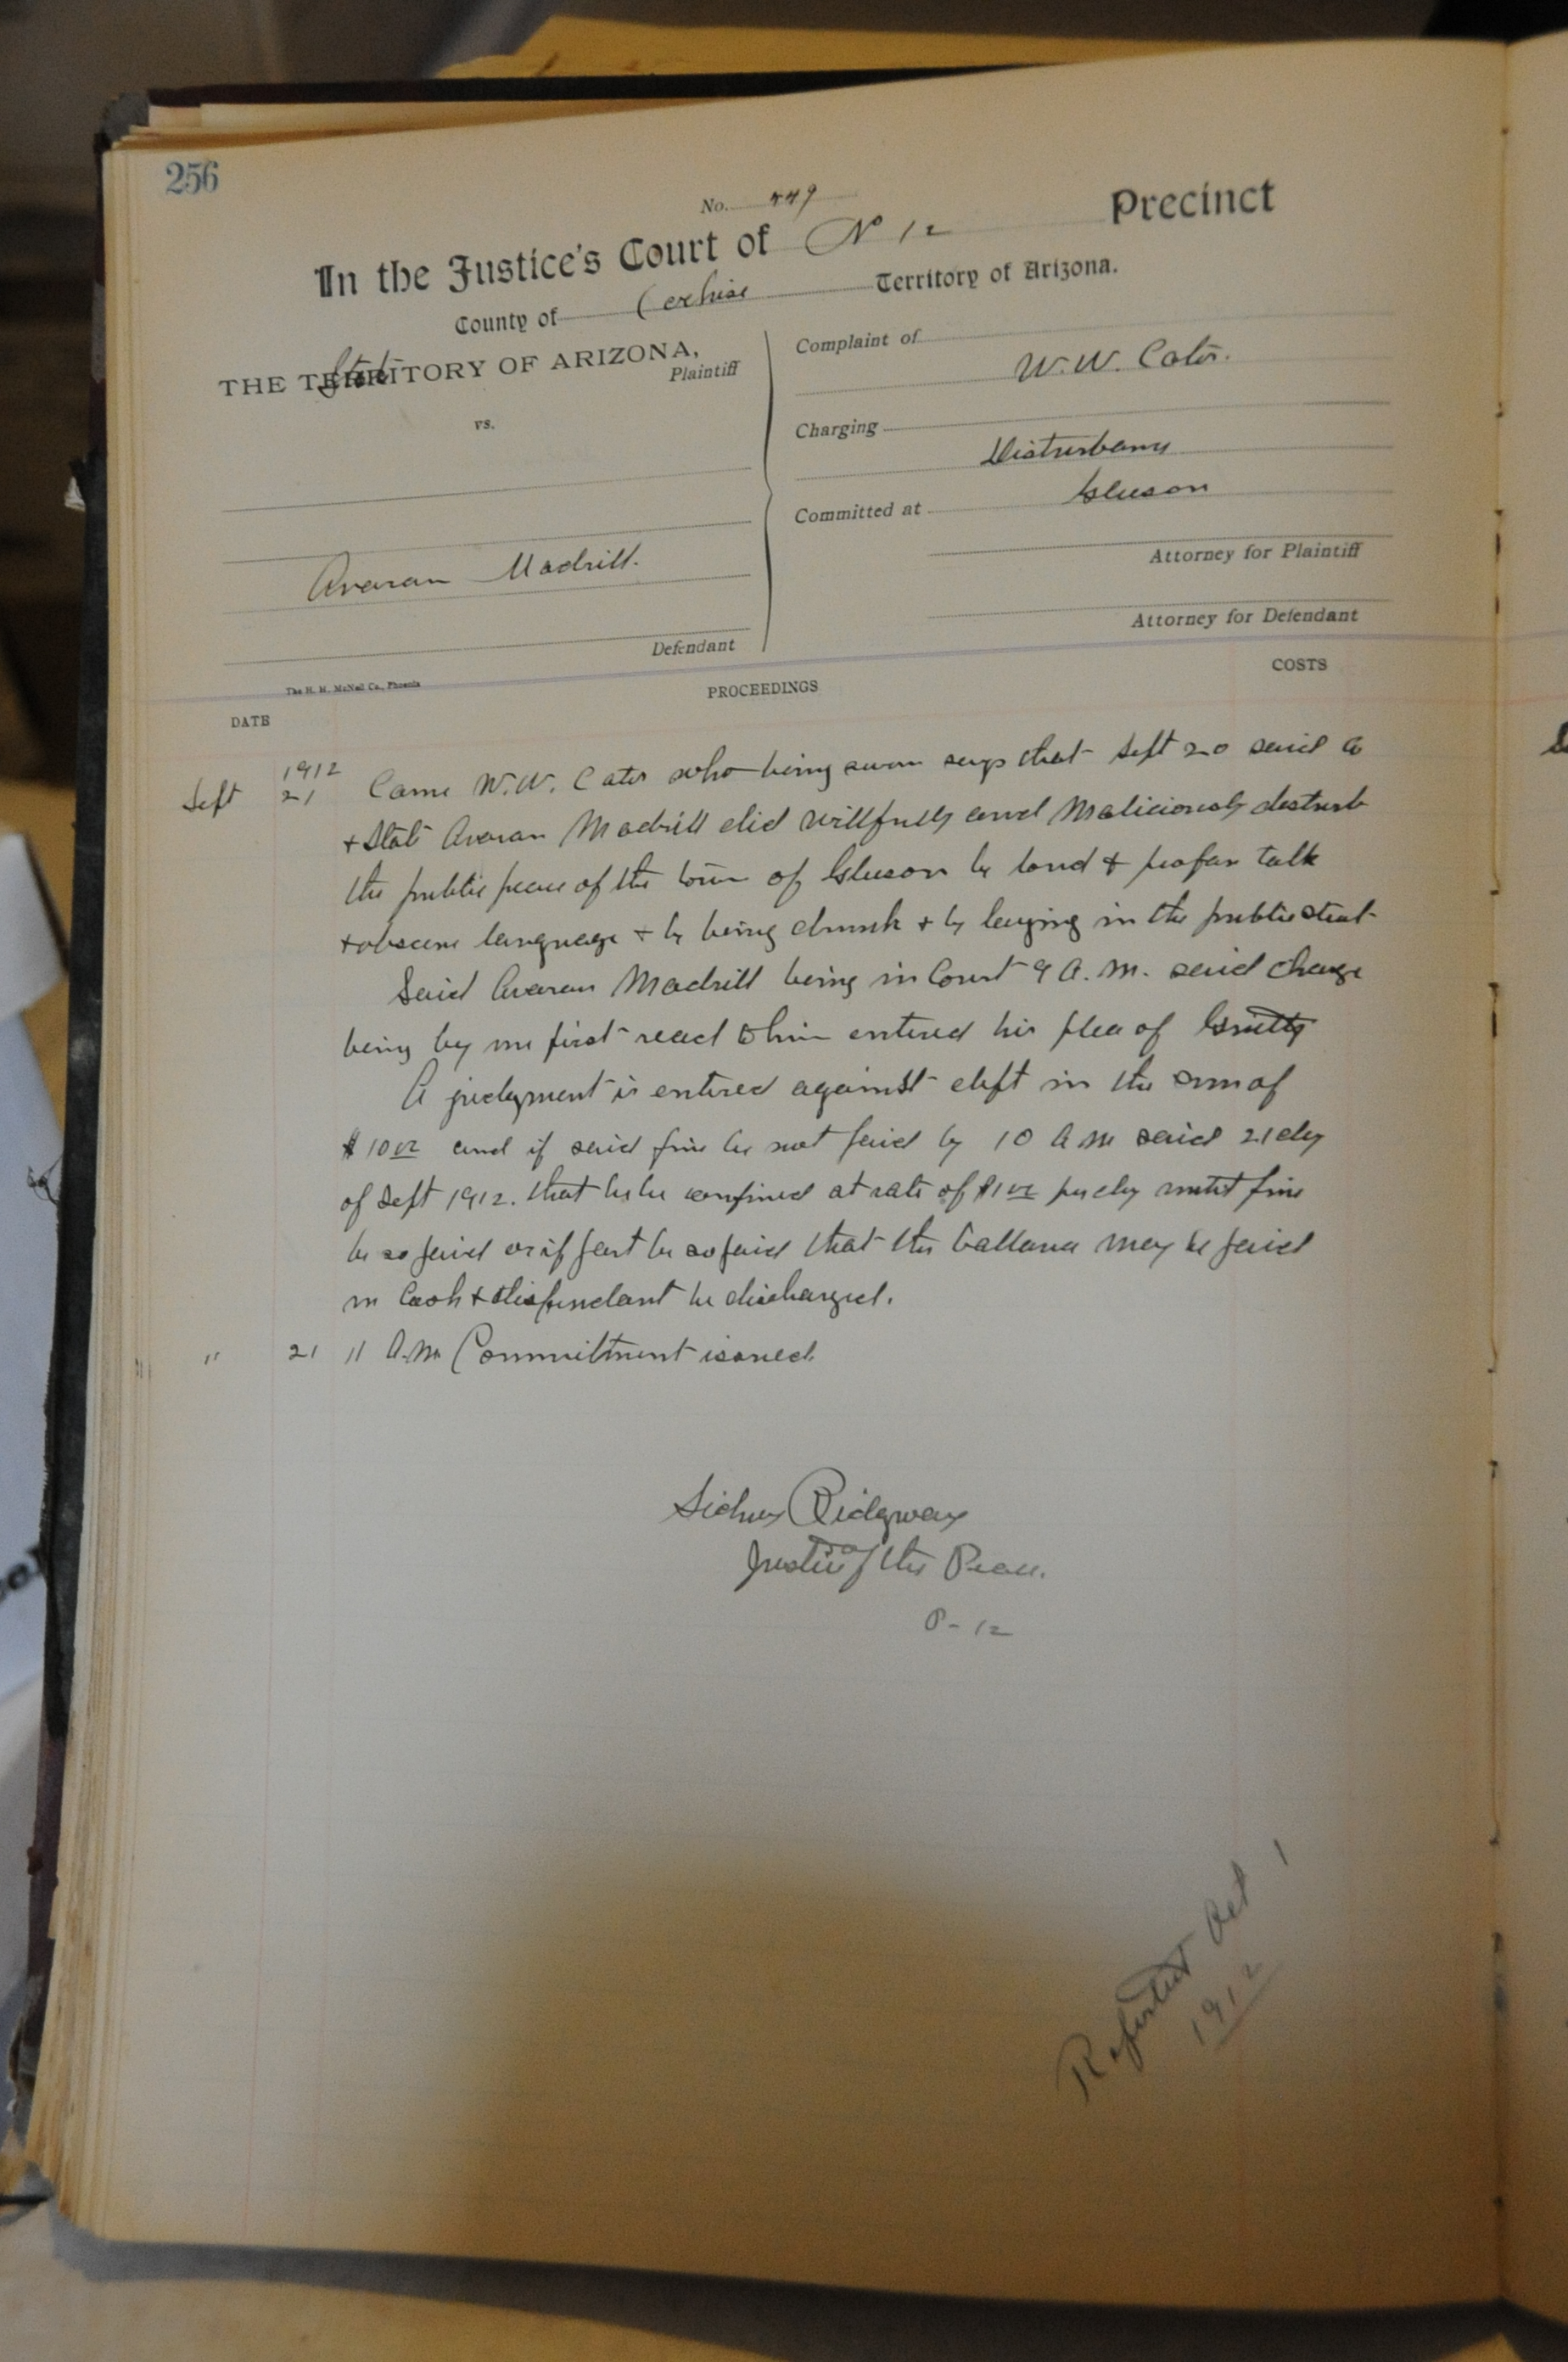 256
No. 449
In the Justice's Court of No 12 Precinct
County of Cochise Territory of Arizona.
THE TERRITORY OF ARIZONA,
State
Plaintiff
vs.
Avaran Madrill.
Defendant
Complaint of
W. W. Cates.
Charging
Disturbance
Committed at Gleeson
Attorney for Plaintiff
Attorney for Defendant
The H. H. McNeil Co., Phoenix
DATE PROCEEDINGS COSTS
1912
Sept 21 Came W. W. Cates who being sworn says that Sept 20 said Co
+ State Avaran Madrill did willfully and Maliciously disturb
the public peace of the town of Gleeson by loud & profan talk
+ obscene language + by being drunk + by laying in the public street
Said Avaran Madrill being in Court 9 A.M. said charge
being by me first read to him entered his plea of Guilty
A judgment is entered against deft in the sum of
$10.00 and if said fine be not paid by 10 A M said 21 day
of Sept 1912. that he be confined at rate of $1.00 per day until fine
be so paid or if part be so paid that the ballance may be paid
in Cash + defendant be discharged.
" 21 11 A.M. Commitment issued.
Sidney Ridgway
Justice of the Peace.
P-12
Reported Oct 1
1912